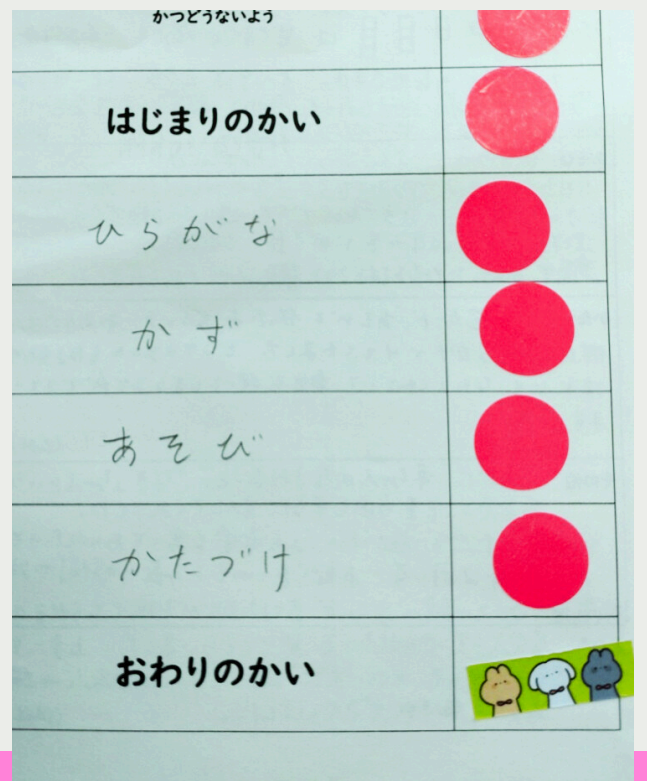 かつどうないよう
はじまりのかい
ひらがな
かず
あそび
かたづけ
おわりのかい